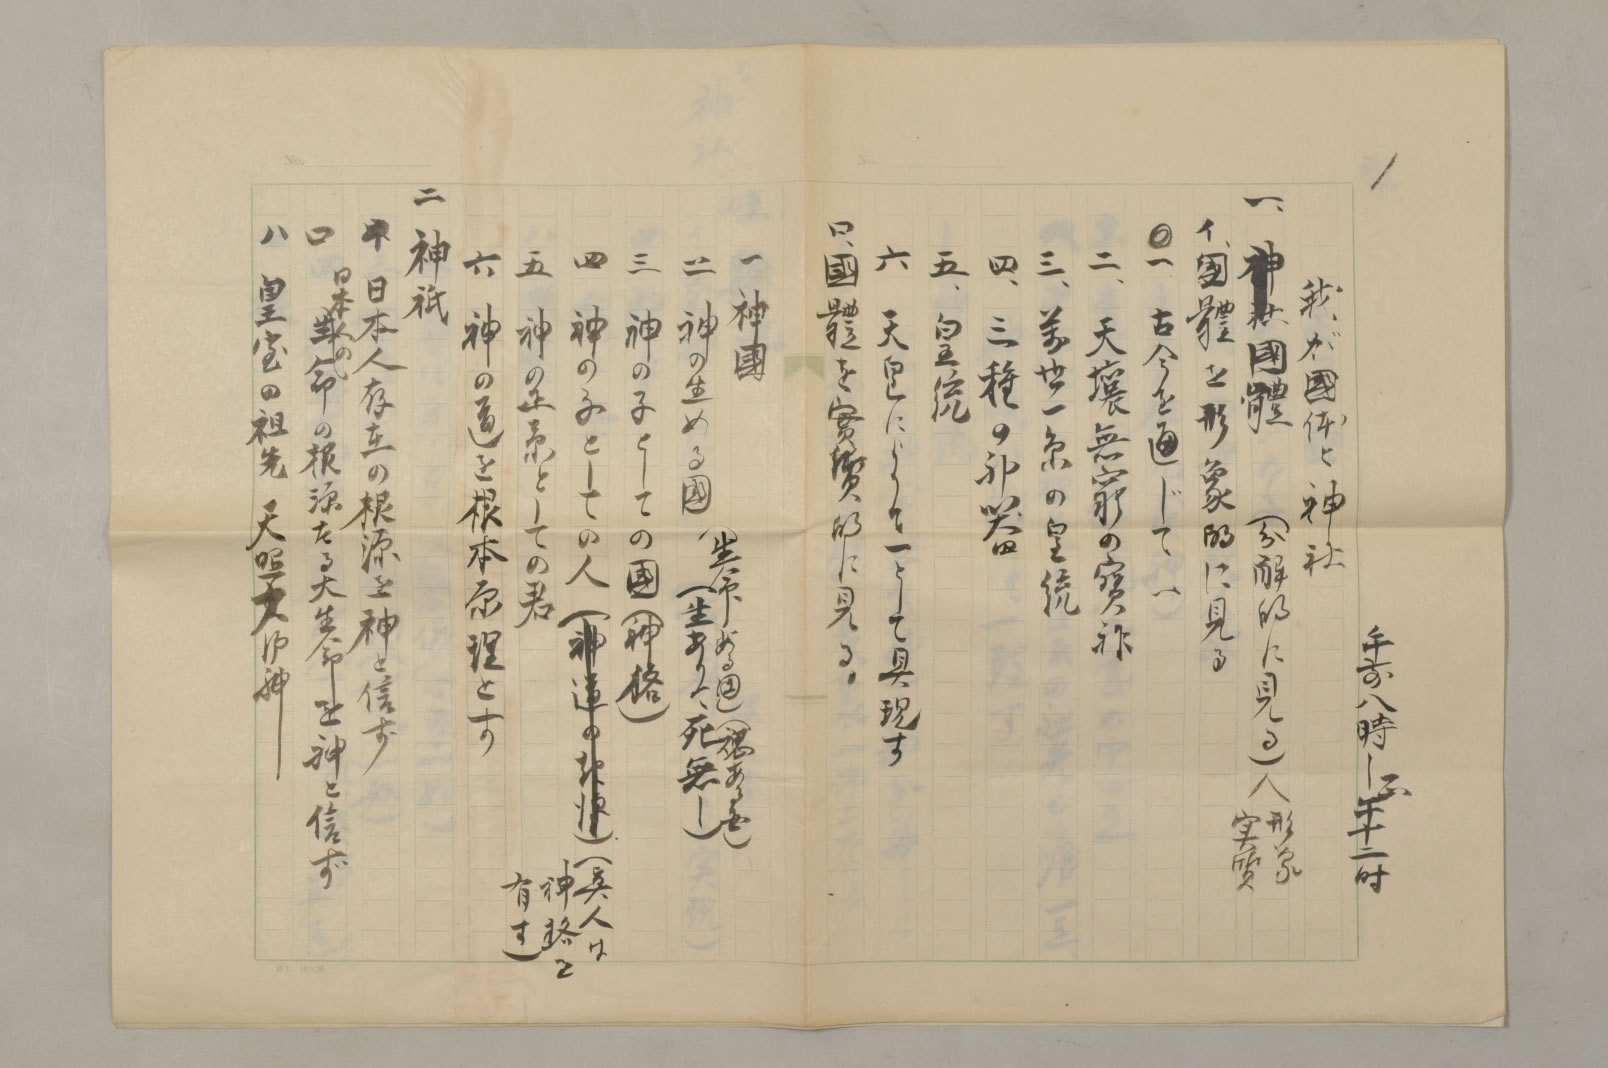 午前八時—正午十二時
我が國体と神社
一、國體 (分解的に見る)人 形象 実質
イ、國體を形象的に見る
◎一 古今を通じて
二、天壤無窮の寳祚
三、萬世一系の皇統
四、三種の神器
五、皇統
六 天皇によりて一として具現す
ロ、國體を實質的に見る。
一 神國
二 神の生める國 (生命ある国)
(生ありて、死無し)
三 神の子としての國(神格)
四 神の子としての人 (神道の) (吾人は神格を有す)
五 神の正系としての君
六 神の道を根本原理とす
二 神祇
日本人存在の根源を神と信ず
ロ 日本人の生命の根源たる大生命を神と信ず
ハ 皇室の祖先 天照大御神
No.
No.
10×25